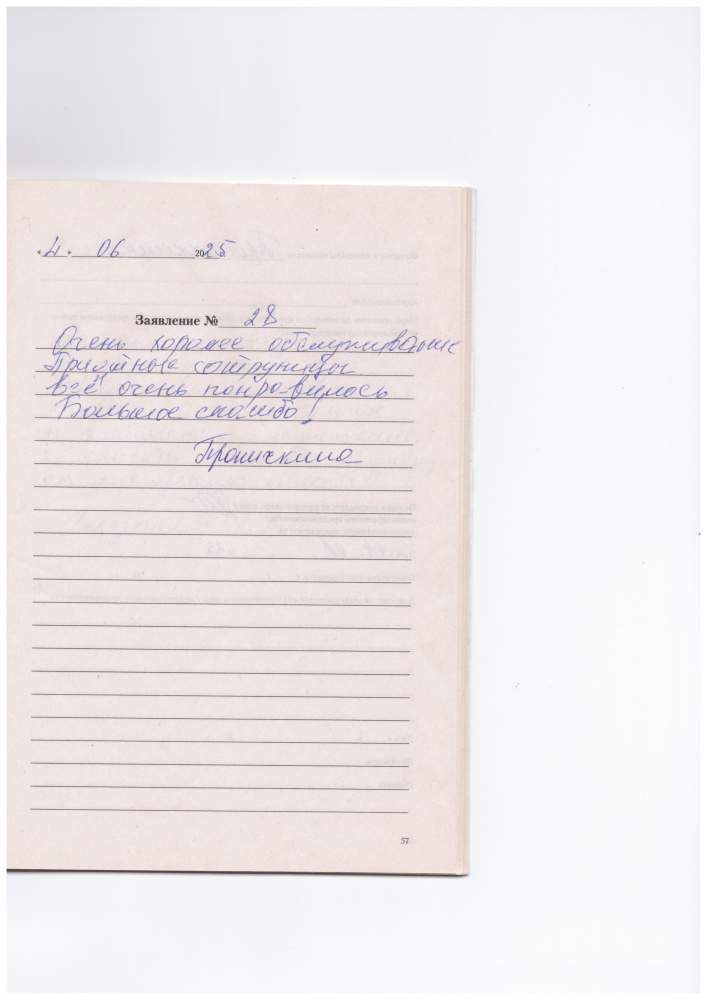 « 4 » 06 2025
Заявление № 28
Очень хорошее обслуживание
Приятные сотрудницы
Всё очень понравилось
Большое спасибо!
57